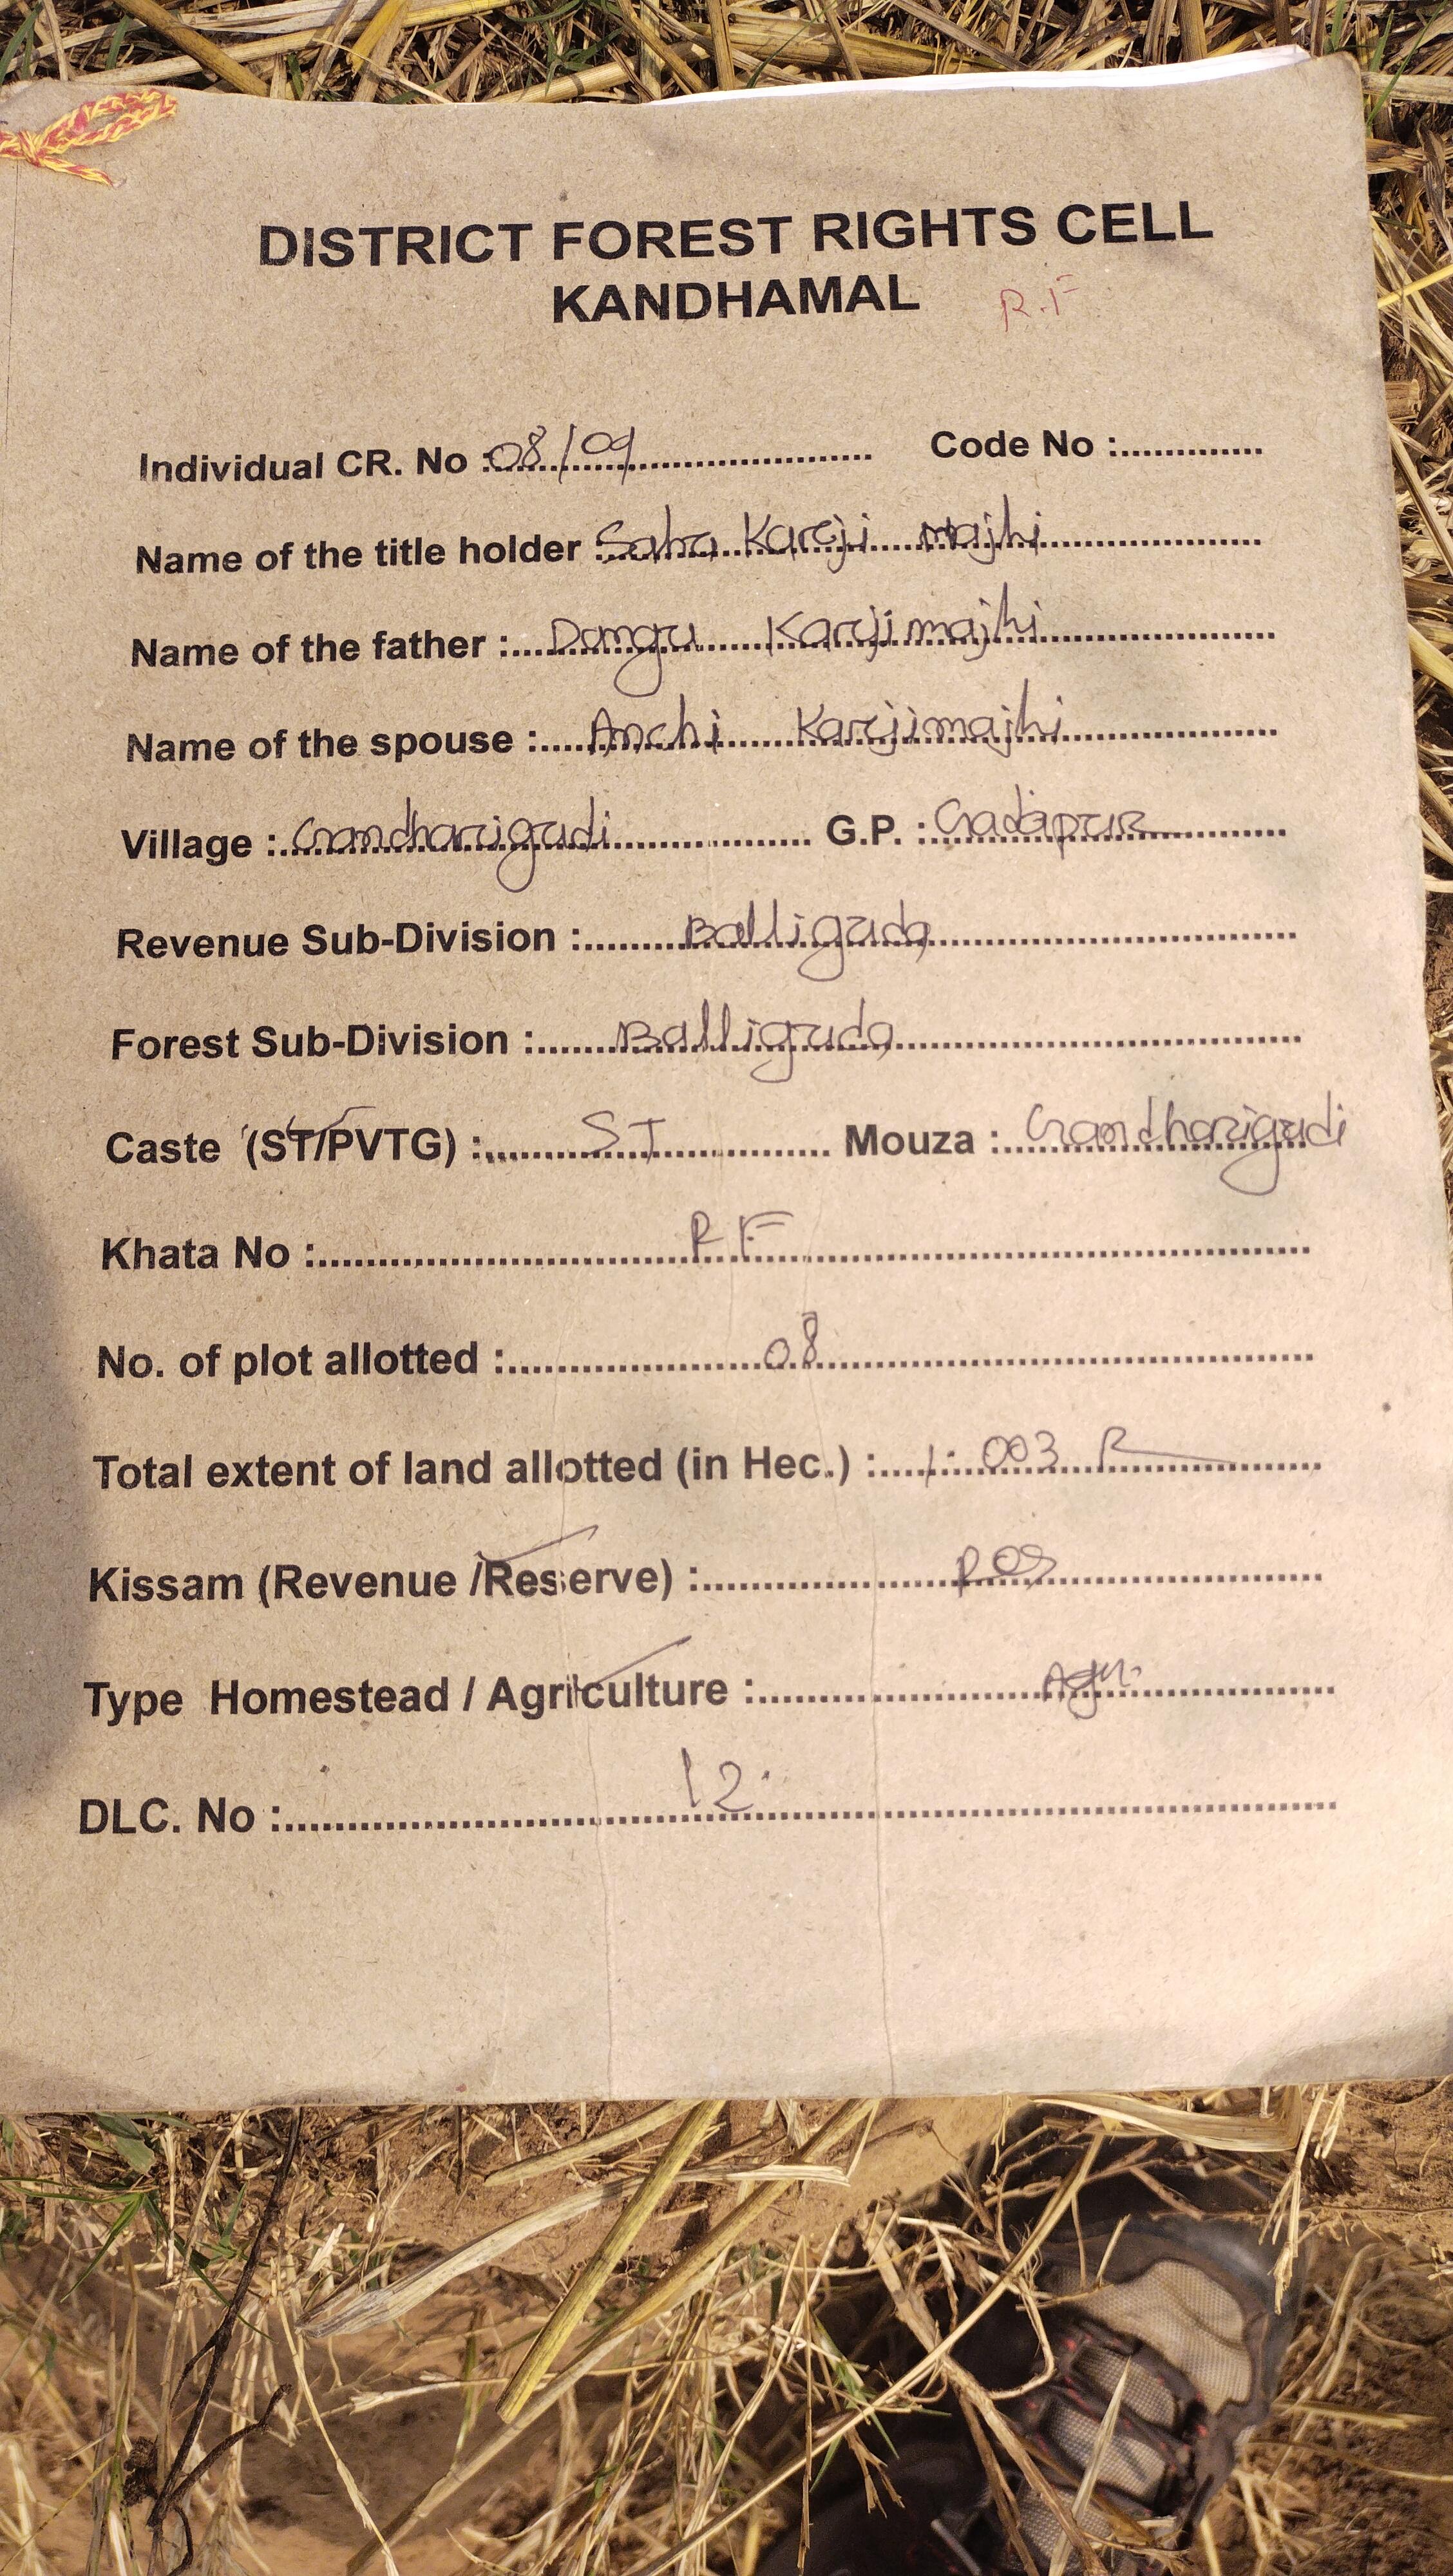 DISTRICT FOREST RIGHTS CELL
KANDHAMAL R.F
Individual CR. No :08/09 Code No :
Name of the title holder : Saba Karji majhi
Name of the father : Dangu Karjimajhi
Name of the spouse : Anchi Karjimajhi
Village : Gandharigudi G.P. : Gadapur
Revenue Sub-Division : Balliguda
Forest Sub-Division : Balliguda
Caste (ST/PVTG) : ST Mouza : Gandharigudi
Khata No : RF
No. of plot allotted : 08
Total extent of land allotted (in Hec.) : 1.003
Kissam (Revenue /Reserve) :
Type Homestead / Agriculture : Agri.
DLC. No : 12